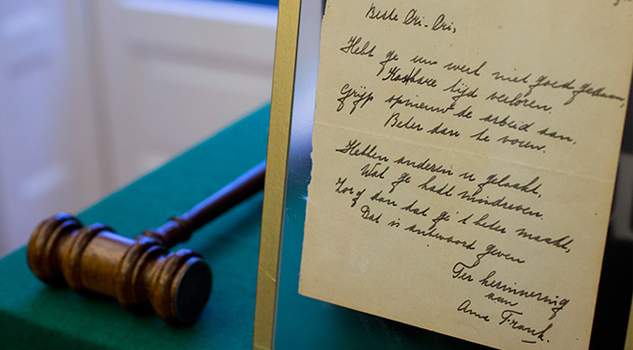 Beste Cri-Cri,
Hebt ge uw werk niet goed gedaan,
Kostbare tijd verloren.
Grijp opnieuw de arbeid aan,
Beter dan te voren.
Hebben anderen u gelaakt,
Wat ge hadt misdreven,
Zorg dan dat ge 't beter maakt,
Dat is antwoord geven
Ter herinnering
aan
Anne Frank.